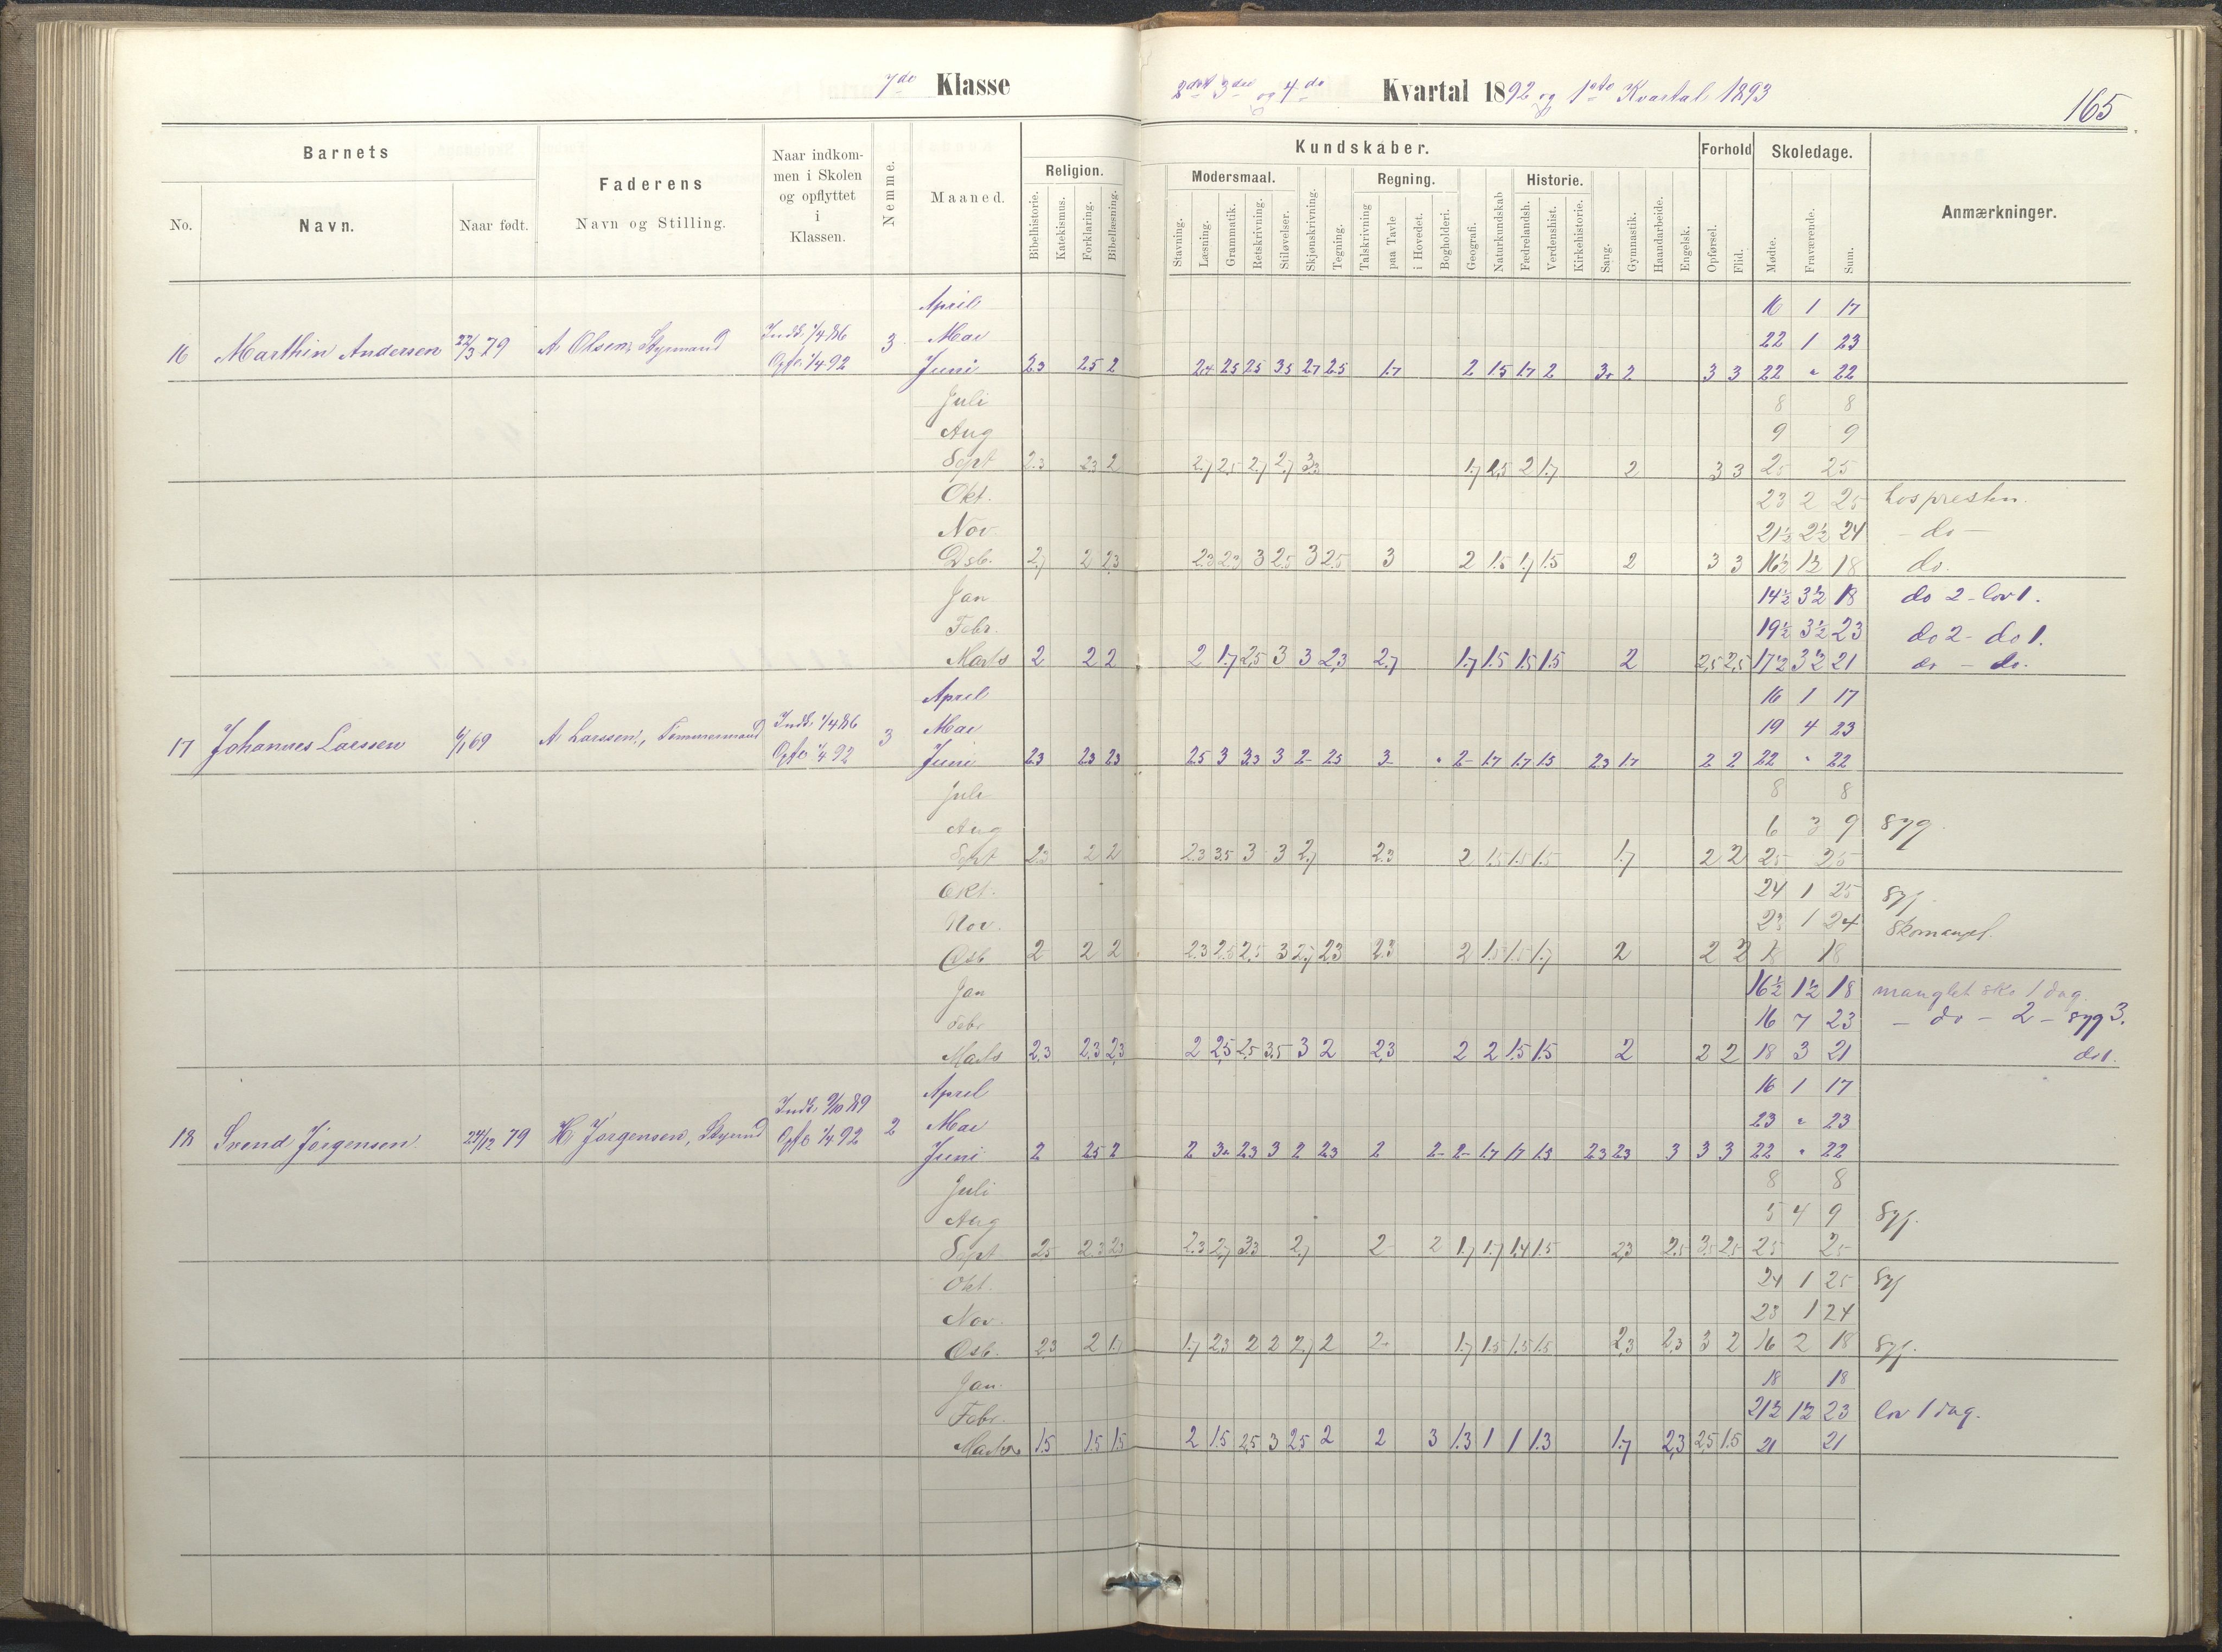 7de Klasse
2det 3die og 4de Kvartal 1892 og 1ste Kvartal 1893
165
Barnets
Faderens
Naar indkom-
men i Skolen
og opflyttet
i
Klassen.
Nemme.
Maaned.
Religion.
Kundskaber.
Forhold
Skoledage.
Anmærkninger.
No.
Navn.
Naar født.
Navn og Stilling.
Modersmaal.
Regning.
Historie.
Bibelhistorie.
Katekismus.
Forklaring.
Bibellæsning.
Stavning.
Læsning.
Grammatik.
Retskrivning.
Stiløvelser.
Skjønskrivning.
Tegning.
Talskrivning
paa Tavle
i Hovedet.
Bogholderi.
Geografi.
Naturkundskab
Fædrelandsh.
Verdenshist.
Kirkehistorie.
Sang.
Gymnastik.
Haandarbeide.
Engelsk.
Opførsel.
Flid.
Mødte.
Fraværende.
Sum.
April 16 1 17
16 Marthin Andersen 22/3 79 A. Olsen, Styrmand Indk. 1/4 86 3 Mai 22 1 23
Opfl. 1/4 92 Juni 2.3 2.5 2 2.4 2.5 2.5 3.5 2.7 2.5 1.7 2 1.5 1.7 2 3. 2 3 3 22 " 22
Juli 8 8
Aug 9 9
Sept 2.3 2.3 2 2.7 2.5 2.7 2.7 3.3 1.7 1.5 2 1.7 2 3 3 25 25
Okt. 23 2 25 hos presten.
Nov. 21½ 2½ 24 - do -
Dsb. 2.7 2 2.3 2.3 2.3 3 2.5 3 2.5 3 2 1.5 1.7 1.5 2 3 3 16½ 1½ 18 do.
Jan 14½ 3½ 18 do 2 - lov 1.
Febr. 19½ 3½ 23 do 2 - do 1.
Marts 2 2 2 2 1.7 2.5 3 3 2.3 2.7 1.7 1.5 1.5 1.5 2 2.5 2.5 17½ 3½ 21 do - do.
April 16 1 17
17 Johannes Larssen 6/1 69 A. Larssen, Tømmermand Indk. 1/4 86 3 Mai 19 4 23
Opfl. 1/4 92 Juni 2.3 2.3 2.3 2.5 3 3.3 3 2- 2.5 3- " 2- 1.7 1.7 1.5 2.3 1.7 2 2 22 " 22
Juli 8 8
Aug 6 3 9 syg
Sept 2.3 2 2 2.3 3.5 3 3 2.7 2.3 2 1.5 1.5 1.5 1.7 2 2 25 25
Okt. 24 1 25 syg.
Nov. 23 1 24 Skomangel
Dsb 2 2 2 2.3 2.5 2.5 3 2.7 2.3 2.3 2 1.5 1.5 1.7 2 2 2 18 18
Jan 16½ 1½ 18 manglet sko 1 dag.
Febr 16 7 23 - do - 2 - syg 3.
Marts 2.3 2.3 2.3 2 2.5 2.5 3.5 3 2 2.3 2 2 1.5 1.5 2 2 2 18 3 21 do 1.
April 16 1 17
18 Svend Jørgensen 24/12 79 H. Jørgensen, Styrmd Indk. 9/10 89 Opfl. 1/4 92 2 Mai 23 " 23
Juni 2 2.5 2 2 3. 2.3 3 2 2.3 2 2- 2- 1.7 1.7 1.5 2.3 2.3 3 3 3 22 " 22
Juli 8 8
Aug 5 4 9 Syg.
Sept 2.5 2.3 2.3 2.3 2.7 3.3 2.7 2 2 1.7 1.7 1.4 1.5 2.3 2.5 3.5 2.5 25 25
Okt. 24 1 25 Syg
Nov. 23 1 24
Dsb. 2.3 2 1.7 1.7 2.3 2 2 2.7 2 2- 1.7 1.5 1.5 1.5 2.3 2.3 3 2 16 2 18 Syg.
Jan. 18 18
Febr. 21½ 1½ 23 lov 1 dag.
Marts 1.5 1.5 1.5 2 1.5 2.5 3 2.5 2 2 3 1.3 1 1 1.3 1.7 2.3 2.5 1.5 21 21